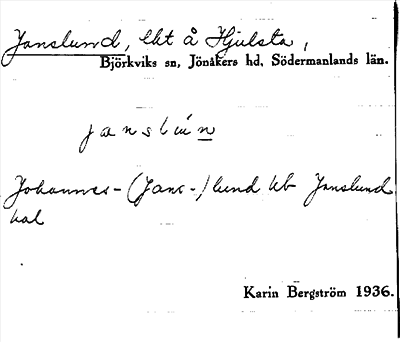 Janslund, lht å Hjulsta,
Björkviks sn, Jönåkers hd, Södermanlands län.
janslún
Johannes-(Jans-)lund kb Janslund
kal
Karin Bergström 1936.